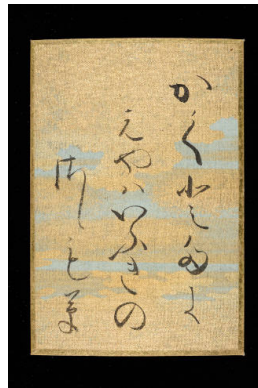 かくとたに
えやはいふきの
さしも草